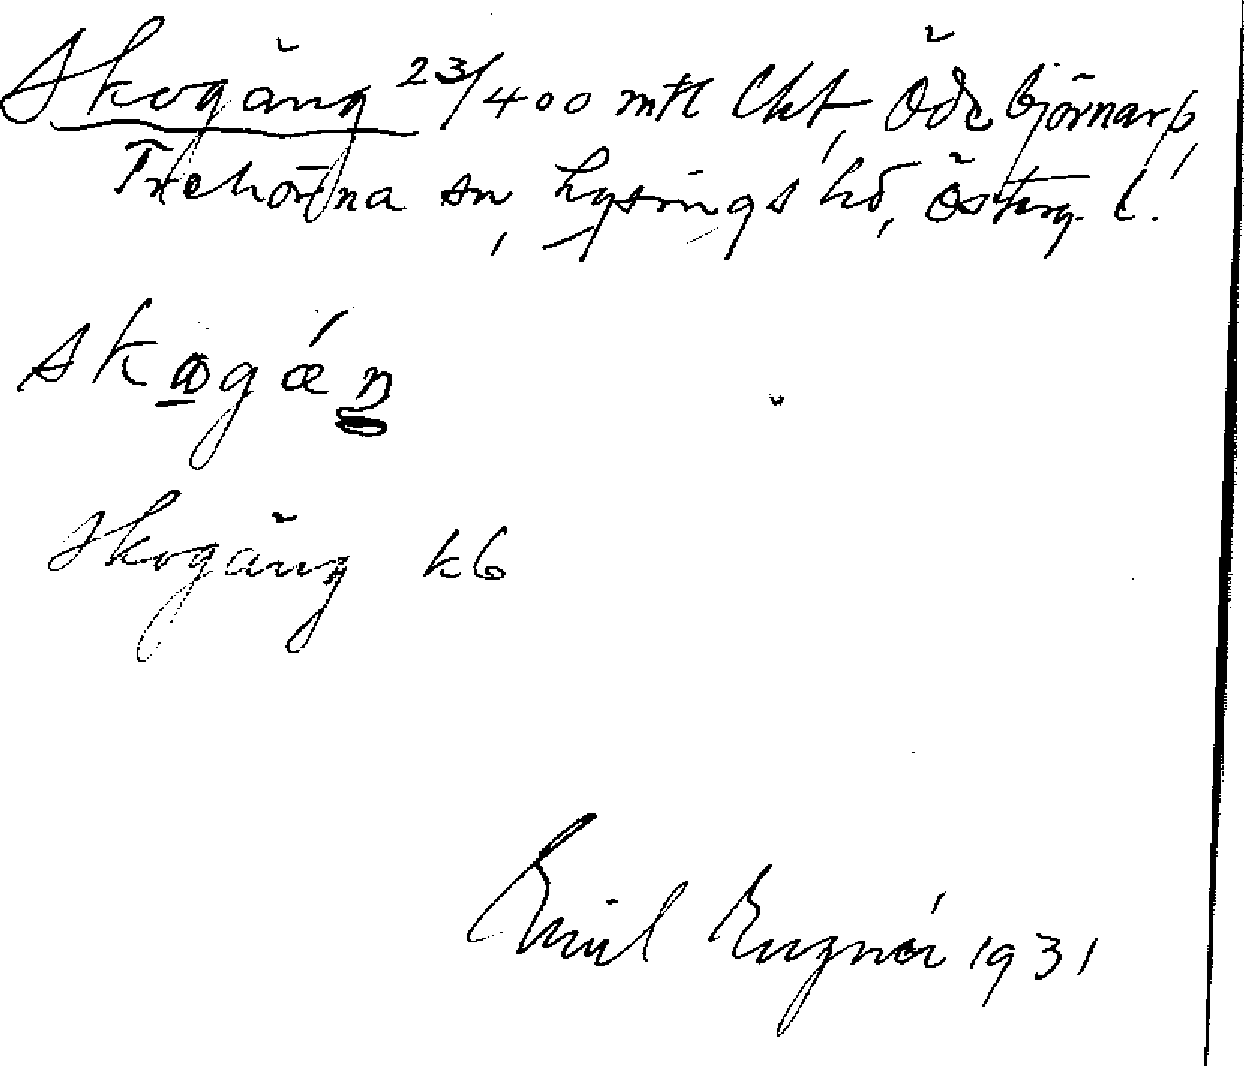 Skogäng 23/400 mtl Ckt, Ödebjörnarp,
Trehörna sn, Lysings hd, Österg. l.
skogǽn
Skogäng kb
Emil 1931